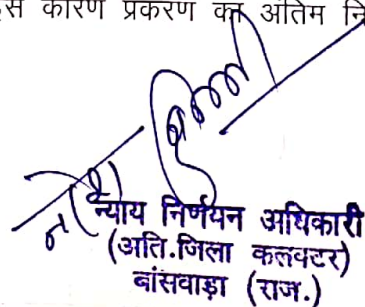 कारण प्रकरण का अंतिम
न्याय निर्णयन अधिकारी
(अति.जिला कलक्टर)
बांसवाड़ा (राज.)